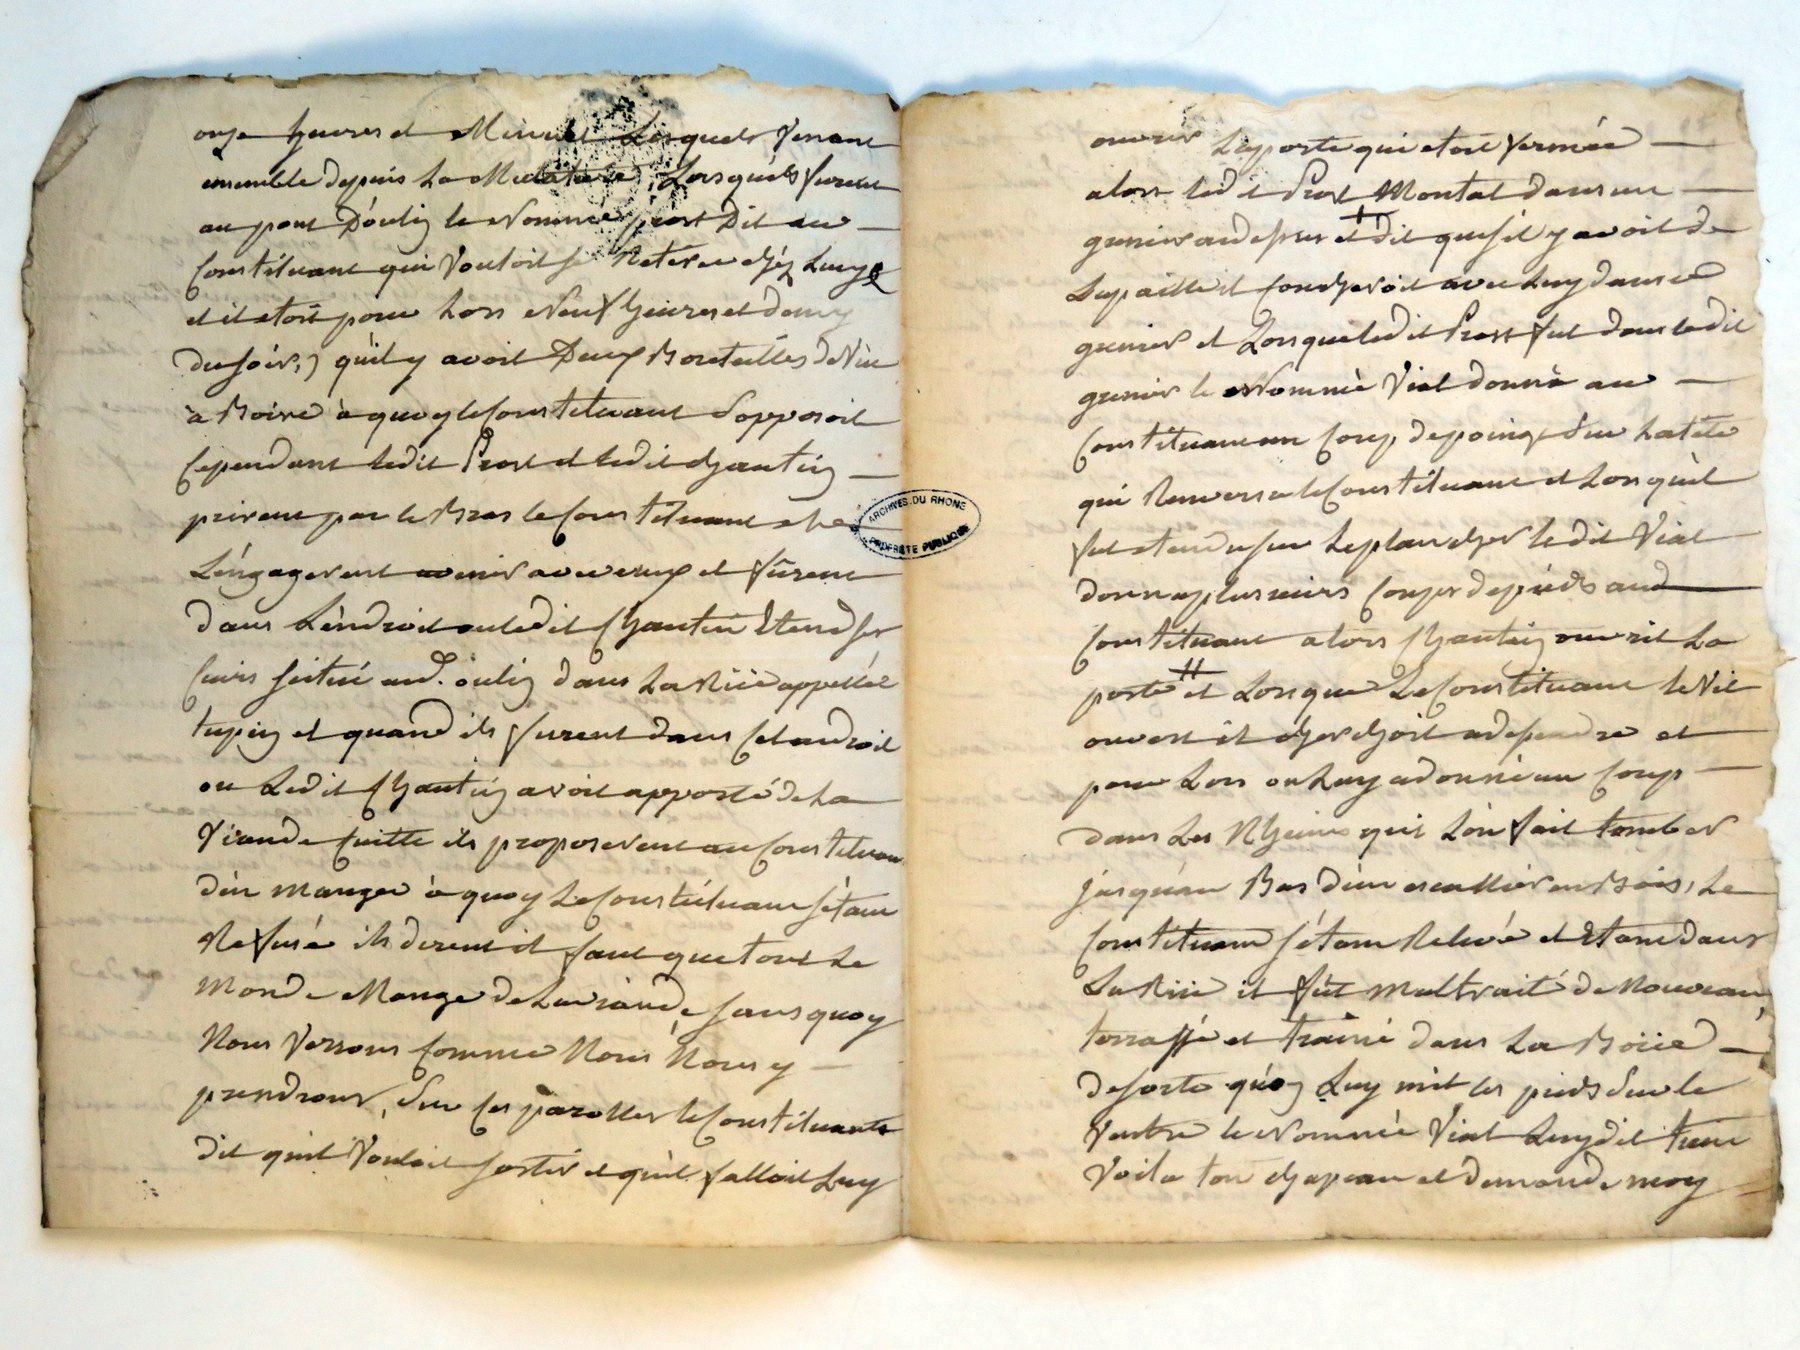 onze heures et Minuit Lesquels Venant
ensemble depuis La Mulatiere, Lorsquils furent
au pont D'oulin le Nommé prost Dit au
Constituant qui Vouloit se Retirer chéz Luy
et il etoit pour Lors Neuf heures et demy
du soir,) qu'il y avoit Deux Bouteilles de Vin
à Boire à quoy le Constituant S'opposoit
Cependant ledit Prost et ledit chantin
prirent par le Bras le Constituant
L'éngagerent avenir avec eux et fûrent
dans L'éndroit ou ledit Chantin Etend ses
Cuirs scitué aud. oulin dans La Rüe appellée
tupin et quand ils furent dans Cet androit
ou Ledit Chantin avoit apporté de La
Viande Cuitte ils proposerent au Constituan
d'en manger à quoy Le Constituant s'étant
Refusé ils dirent il faut que tout Le
monde Mange de La viande sans quoy
Nous Verrons Comme Nous Nous y
prendrons, sur Ces parolles le Constituant
dit quil Vouloit sortir et qu'il falloit Luy
ARCHIVES DU RHONE
PROPRIETE PUBLIQUE
ouvrir La porte qui etoit fermée
alors ledit Prost Montat dans un
grenier au dessus et dit que s'il y avoit de
La paille il Coucheroit avec Luy dans ce
grenier et Lorsque ledit Prost fut dans ledit
grenier le Nommé Vial donna au
Constituant un Coup de poing sur La tête
qui Renversa le Constituant et Lorsquil
fut etendu sur Le plancher ledit Vial
donna plusieurs Coups de pieds aud
Constituant alors Chantin ouvrit La
porte et Lorsque Le Constituant le Vit
ouvert il cherchoit a descendre et
pour Lors on Luy a donné un Coup
dans Les Rheins qui L'on fait tomber
jusqu'au Bas d'un escallier en Bois, Le
Constituant s'étant Relevé et Etant dans
La Rüe il fût maltraité de Nouveau
terrassé et trainé dans La Boüe
de sorte qu'on Luy mit les pieds sur le
Ventre le Nommé Vial Luy dit tien
Voila ton chapeau et demande moy